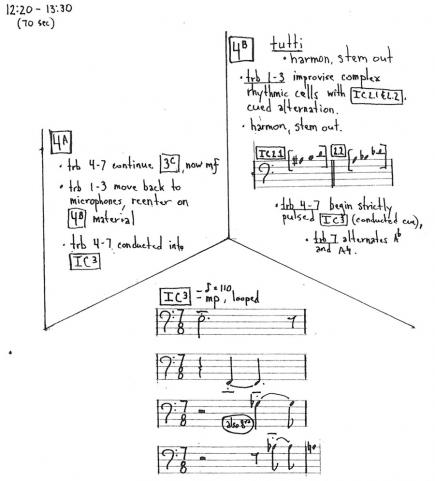 12:20 - 13:30
(70 sec)
4A
• trb 4-7 continue 3C, now mf
• trb 1-3 move back to
microphones, reenter on
4B material
• trb 4-7 conducted into
IC3
4B tutti
• harmon, stem out
• trb 1-3 improvise complex
rhythmic cells with IC2.1 & 2.2,
cued alternation.
• harmon, stem out.
IC2.1
2.2
• trb 4-7 begin strictly
pulsed IC3 (conducted cue),
• trb 7 alternates Ab
and A♮.
IC3 - ♪=110
- mp, looped
7/8
7/8
7/8
also 8va
7/8